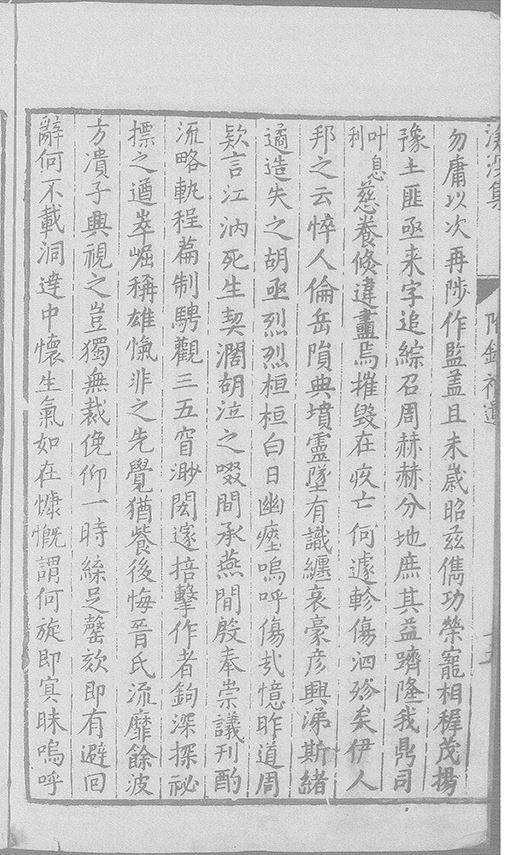 勿庸以次再陟作監蓋且未歲昭茲儁功榮寵相稱茂揚
豫土匪亟来字追綜召周赫赫分地庶其益躋隆我鼎司
叶息利慈養倏違畫焉摧毀在疚亡何遽軫傷泗殄矣伊人
邦之云悴人倫岳隕典墳靈墜有識纏哀豪彦興涕斯緒
遹造失之胡亟烈烈桓桓白日幽瘞嗚呼傷哉憶昨道周
欵言江汭死生契濶胡泣之啜間承燕閒殷奉崇議刊酌
流略軌程萹制騁觀三五窅渺閎邃掊擊作者鉤深探祕
摽之遒崒崛稱雄愾非之先覺猶餐後悔晋氏流靡餘波
方潰子興視之豈獨無裁俛仰一時緜足罄欬即有避回
辭何不載洞達中懷生氣如在慷慨謂何旋即冥昧嗚呼